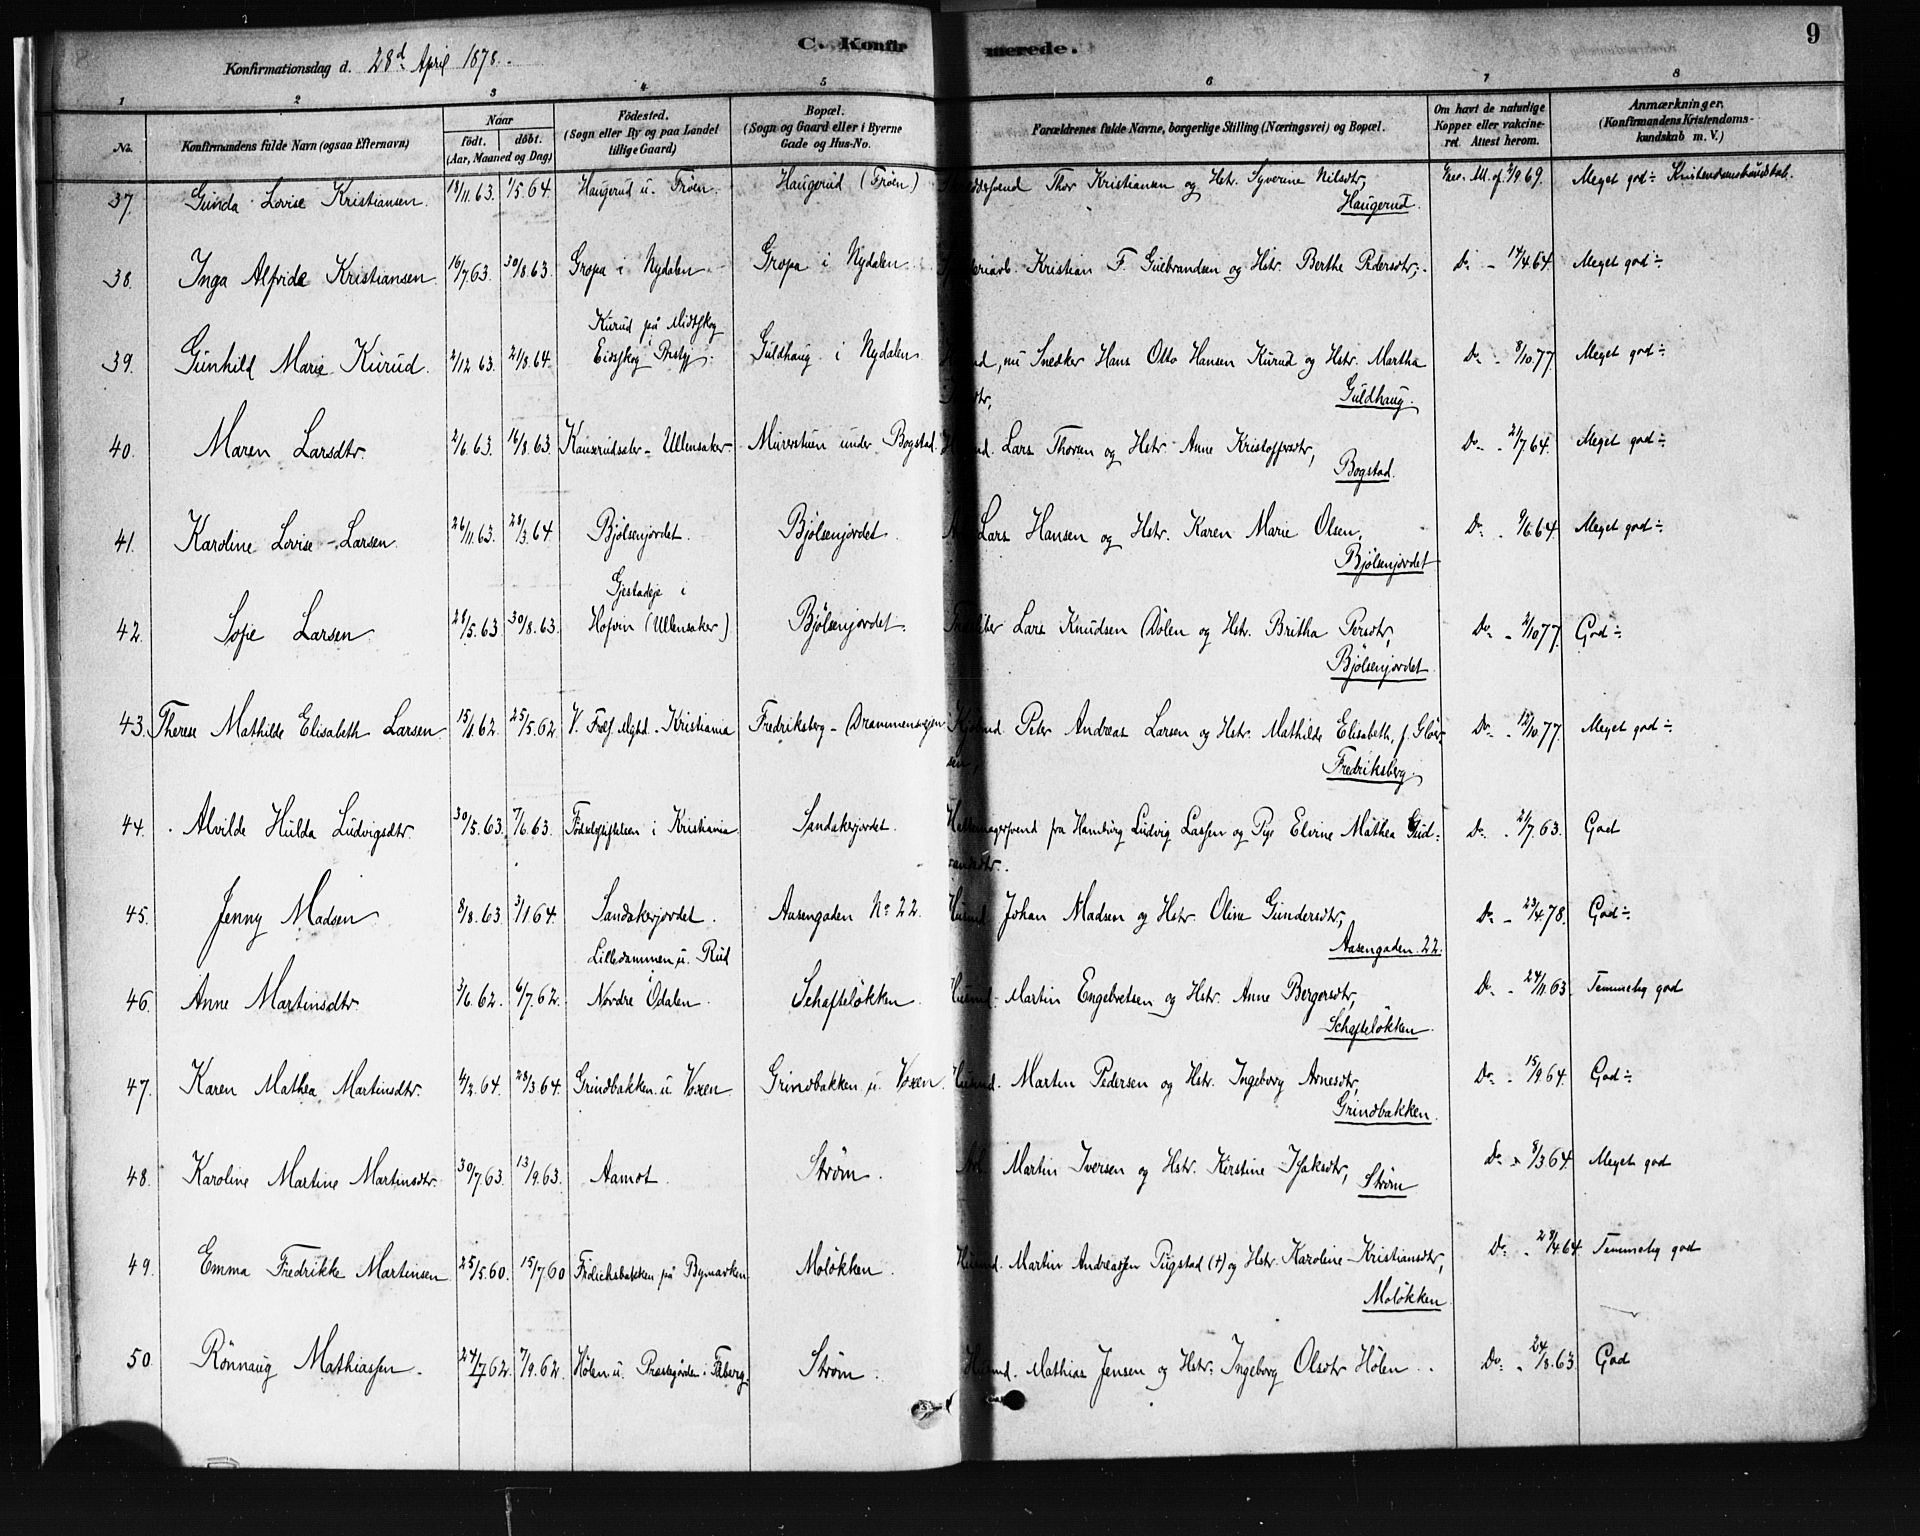 C. Konfirmerede.
9
Konfirmationsdag d. 28d April 1878.
1 2 3 4 5 6 7 8
No. Konfirmandens fulde Navn (ogsaa Efternavn) Naar født. døbt. (Aar, Maaned og Dag) Fødested. (Sogn eller By og paa Landet tillige Gaard) Bopæl. (Sogn og Gaard eller i Byerne Gade og Hus-No. Forældrenes fulde Navne, borgerlige Stilling (Næringsvei) og Bopæl. Om havt de naturlige Kopper eller vakcineret. Attest herom. Anmærkninger. (Konfirmandens Kristendomskundskab m. V.)
37. Gunda Lovise Kristiansen. 18/11 63. 1/5 64. Haugerud u. Frøen. Haugerud (Frøen) Thor Kristiansen og Hstr. Syverine Nilsdtr, 7/9 69. Meget god ÷ Kristendomskundskab.
Haugerud.
38. Inga Alfride Kristiansen 16/7 63. 30/8 63. Gropa i Nydalen Gropa i Nydalen Kristian F. Gulbrandsen og Hstr. Berthe Pedersdtr, Do - 14/4 64. Meget god ÷
Kurud på Midtskog
39. Gunhild Marie Kurud. 2/12 63. 21/8 64. Eidskog Prstgj. Guldhaug i Nydalen nu Snedker Hans Otto Hansen Kurud og Hstr. Martha Do - 8/10 77. Meget god ÷
Guldhaug.
40. Maren Larsdtr. 2/6 63. 16/8 63. Kauserudsæter - Ullensaker Murerstuen under Bogstad Lars Thoresen og Hstr. Anne Kristoffersdtr, Do - 21/7 64. Meget god ÷
Bogstad.
41. Karoline Lovise Larsen 26/11 63. 28/3 64. Bjølsenjordet. Bjølsenjordet. Lars Hansen og Hstr. Karen Marie Olsen, Do - 9/6 64. Meget god ÷
Bjølsenjordet
Gjestadeje i
42. Sofie Larsen 28/5 63. 30/8 63. Hofvin (Ullensaker) Bjølsenjordet. Lars Knudsen Dølen og Hstr. Britha Persdtr, Do - 2/10 77. God ÷
Bjølsenjordet.
43. Therese Mathilde Elisabeth Larsen 15/1 62. 25/5 62. V. Kristiania Fredriksberg - Drammensvejen Peter Andreas Larsen og Hstr. Mathilde Elisabeth, f. Glør- Do - 12/10 77. Meget god ÷
sen, Fredriksberg.
44. Alvilde Hulda Ludvigsdtr. 30/5 63. 7/6 63. Fødselsstiftelsen i Kristiania Sandakerjordet. Hattemagersvend fra Hamburg Ludvig Lassen og Pige Elvine Mathea Gud- Do - 2/7 63. God
brandsdtr.
45. Jenny Madsen 8/8 63 3/1 64. Sandakerjordet. Aasengaden No 22. Husmd. Johan Madsen og Hstr. Oline Gundersdtr, Do - 23/4 78. God ÷
Aasengaden. 22.
Lilledammen u. Rud i
46. Anne Martinsdtr. 3/6 62. 6/7 62. Nordre Odalen. Schafteløkken. Husmd. Martin Engebretsen og Hstr. Anne Bergersdtr, Do - 24/11 63. Temmelig god
Schafteløkken.
47. Karen Mathea Martinsdtr. 4/2 64. 28/3 64. Grindbakken u. Voxen. Grindbakken u. Voxen. Husmd. Martin Pedersen og Hstr. Ingeborg Arnesdtr, Do - 15/9 64. God ÷
Grindbakken.
48. Karoline Martine Martinsdtr. 30/7 63. 13/9 63. Aamot. Strøm. Arb. Martin Iversen og Hstr. Kirstine Isaksdtr, Do - 8/3 64. Meget god
Strøm
49. Emma Fredrikke Martinsen 25/5 60. 15/7 60 Frølichsbakken på Bymarken Moløkken. Husmd. Martin Andreassen Pugstad (†) og Hstr. Karoline Kristiansdtr, Do - 28/4 64. Temmelig god
Moløkken
50. Rønnaug Mathiassen. 24/7 62. 7/9 62. Hølen u. Præstegården i Fåberg. Strøm. Husmd. Mathias Jensen og Hstr. Ingeborg Olsdtr Hølen. Do - 24/8 63. God